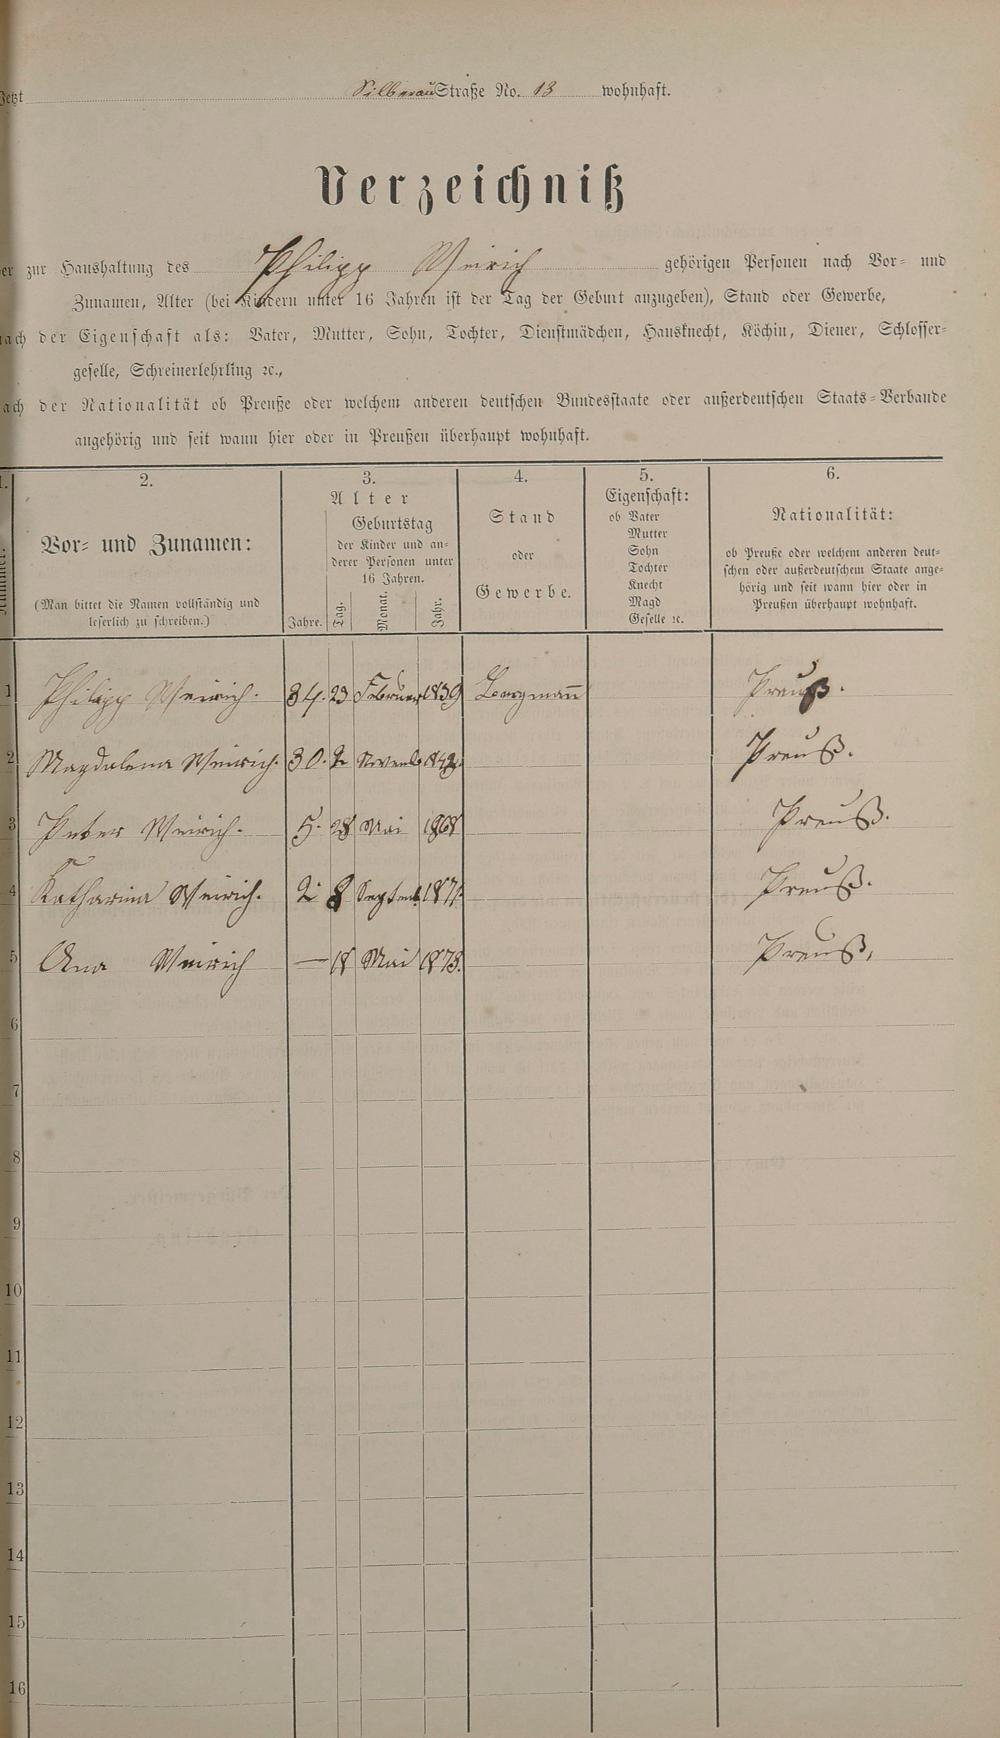 Jetzt Silberau Straße No. 13 wohnhaft.
Verzeichniß
der zur Haushaltung des Philipp Weirich gehörigen Personen nach Vor- und
Zunamen, Alter (bei Kindern unter 16 Jahren ist der Tag der Geburt anzugeben), Stand oder Gewerbe,
nach der Eigenschaft als: Vater, Mutter, Sohn, Tochter, Dienstmädchen, Hausknecht, Köchin, Diener, Schlosser-
geselle, Schreinerlehrling ꝛc.,
nach der Nationalität ob Preuße oder welchem anderen deutschen Bundesstaate oder außerdeutschen Staats-Verbande
angehörig und seit wann hier oder in Preußen überhaupt wohnhaft.
1. 2. 3. 4. 5. 6.
Nummer.
Vor- und Zunamen:
(Man bittet die Namen vollständig und
leserlich zu schreiben.)
Alter
Geburtstag
der Kinder und an-
derer Personen unter
16 Jahren.
Jahre. Tag. Monat. Jahr.
Stand
oder
Gewerbe.
Eigenschaft:
ob Vater
Mutter
Sohn
Tochter
Knecht
Magd
Geselle ꝛc.
Nationalität:
ob Preuße oder welchem anderen deut-
schen oder außerdeutschem Staate ange-
hörig und seit wann hier oder in
Preußen überhaupt wohnhaft.
1 Philipp Weirich. 34. 23 Februar 1839 Bergmann Preuß.
2 Magdalena Weirich. 30. 2 Novemb. 1842. Preuß.
3 Peter Weirich. 5. 28 Mai 1868 Preuß.
4 Katharina Weirich. 2 8 Septemb. 1871. Preuß.
5 Ana Weirich — 18 Mai 1873. Preuß,
6
7
8
9
10
11
12
13
14
15
16